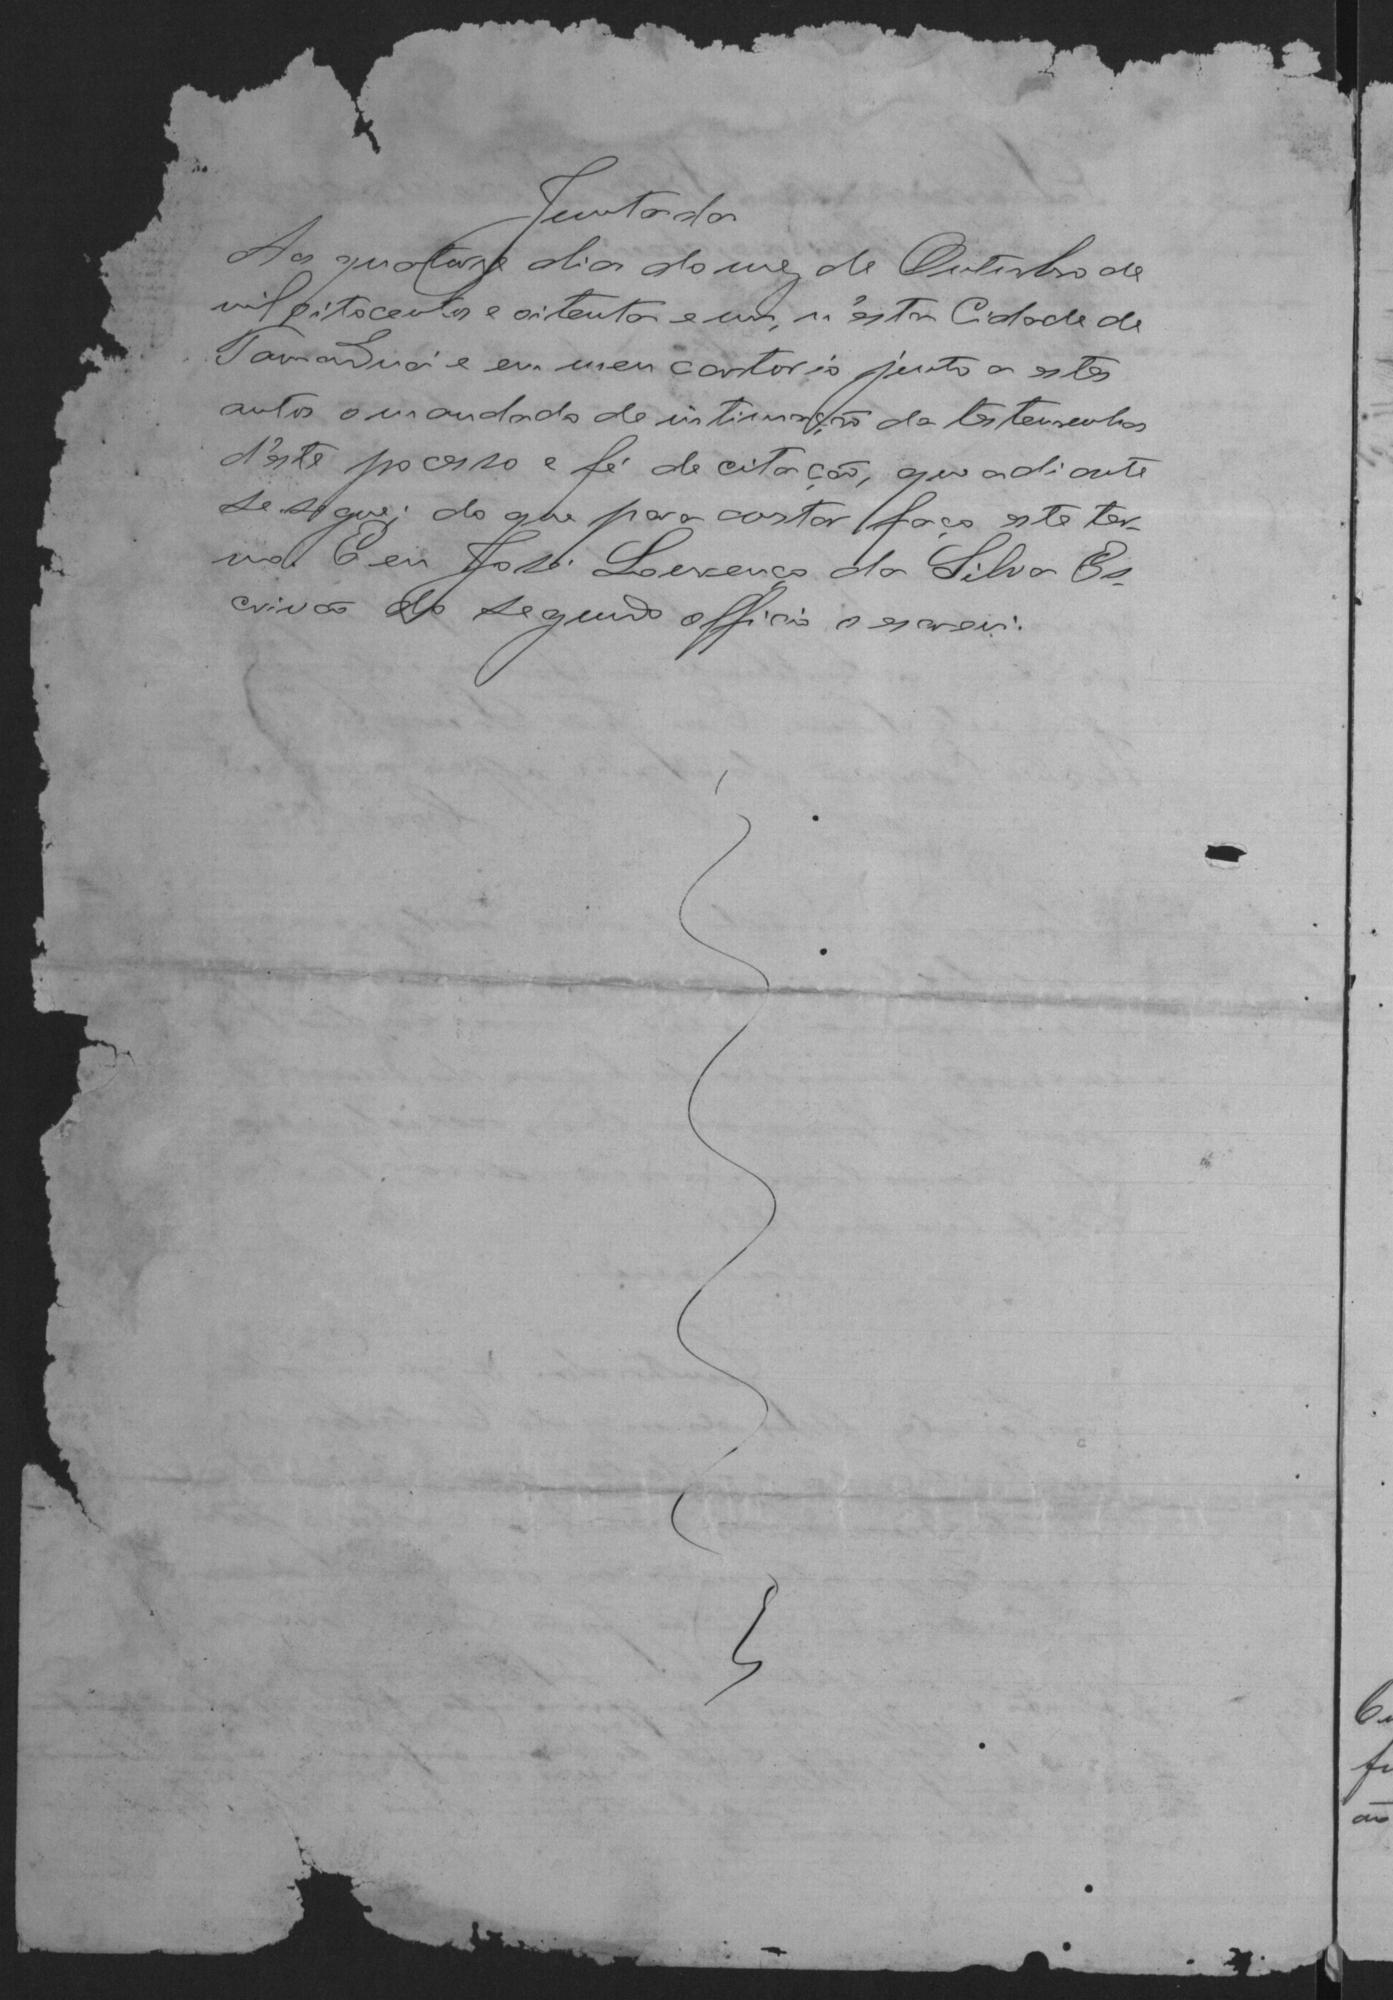 Juntada
Aos quatorze dia do mez de Outubro de
mil oitocentos e oitenta e um, n'esta Cidade de
e em meu cartorio junto a estes
autos o mandado de intimação da testemunhas
d'este pocesso e fé de citação, que adiante
se segue; do que para costar faço este ter-
mo. E eu José Lourenço da Silva Es-
crivão do segundo officio o escrevi.